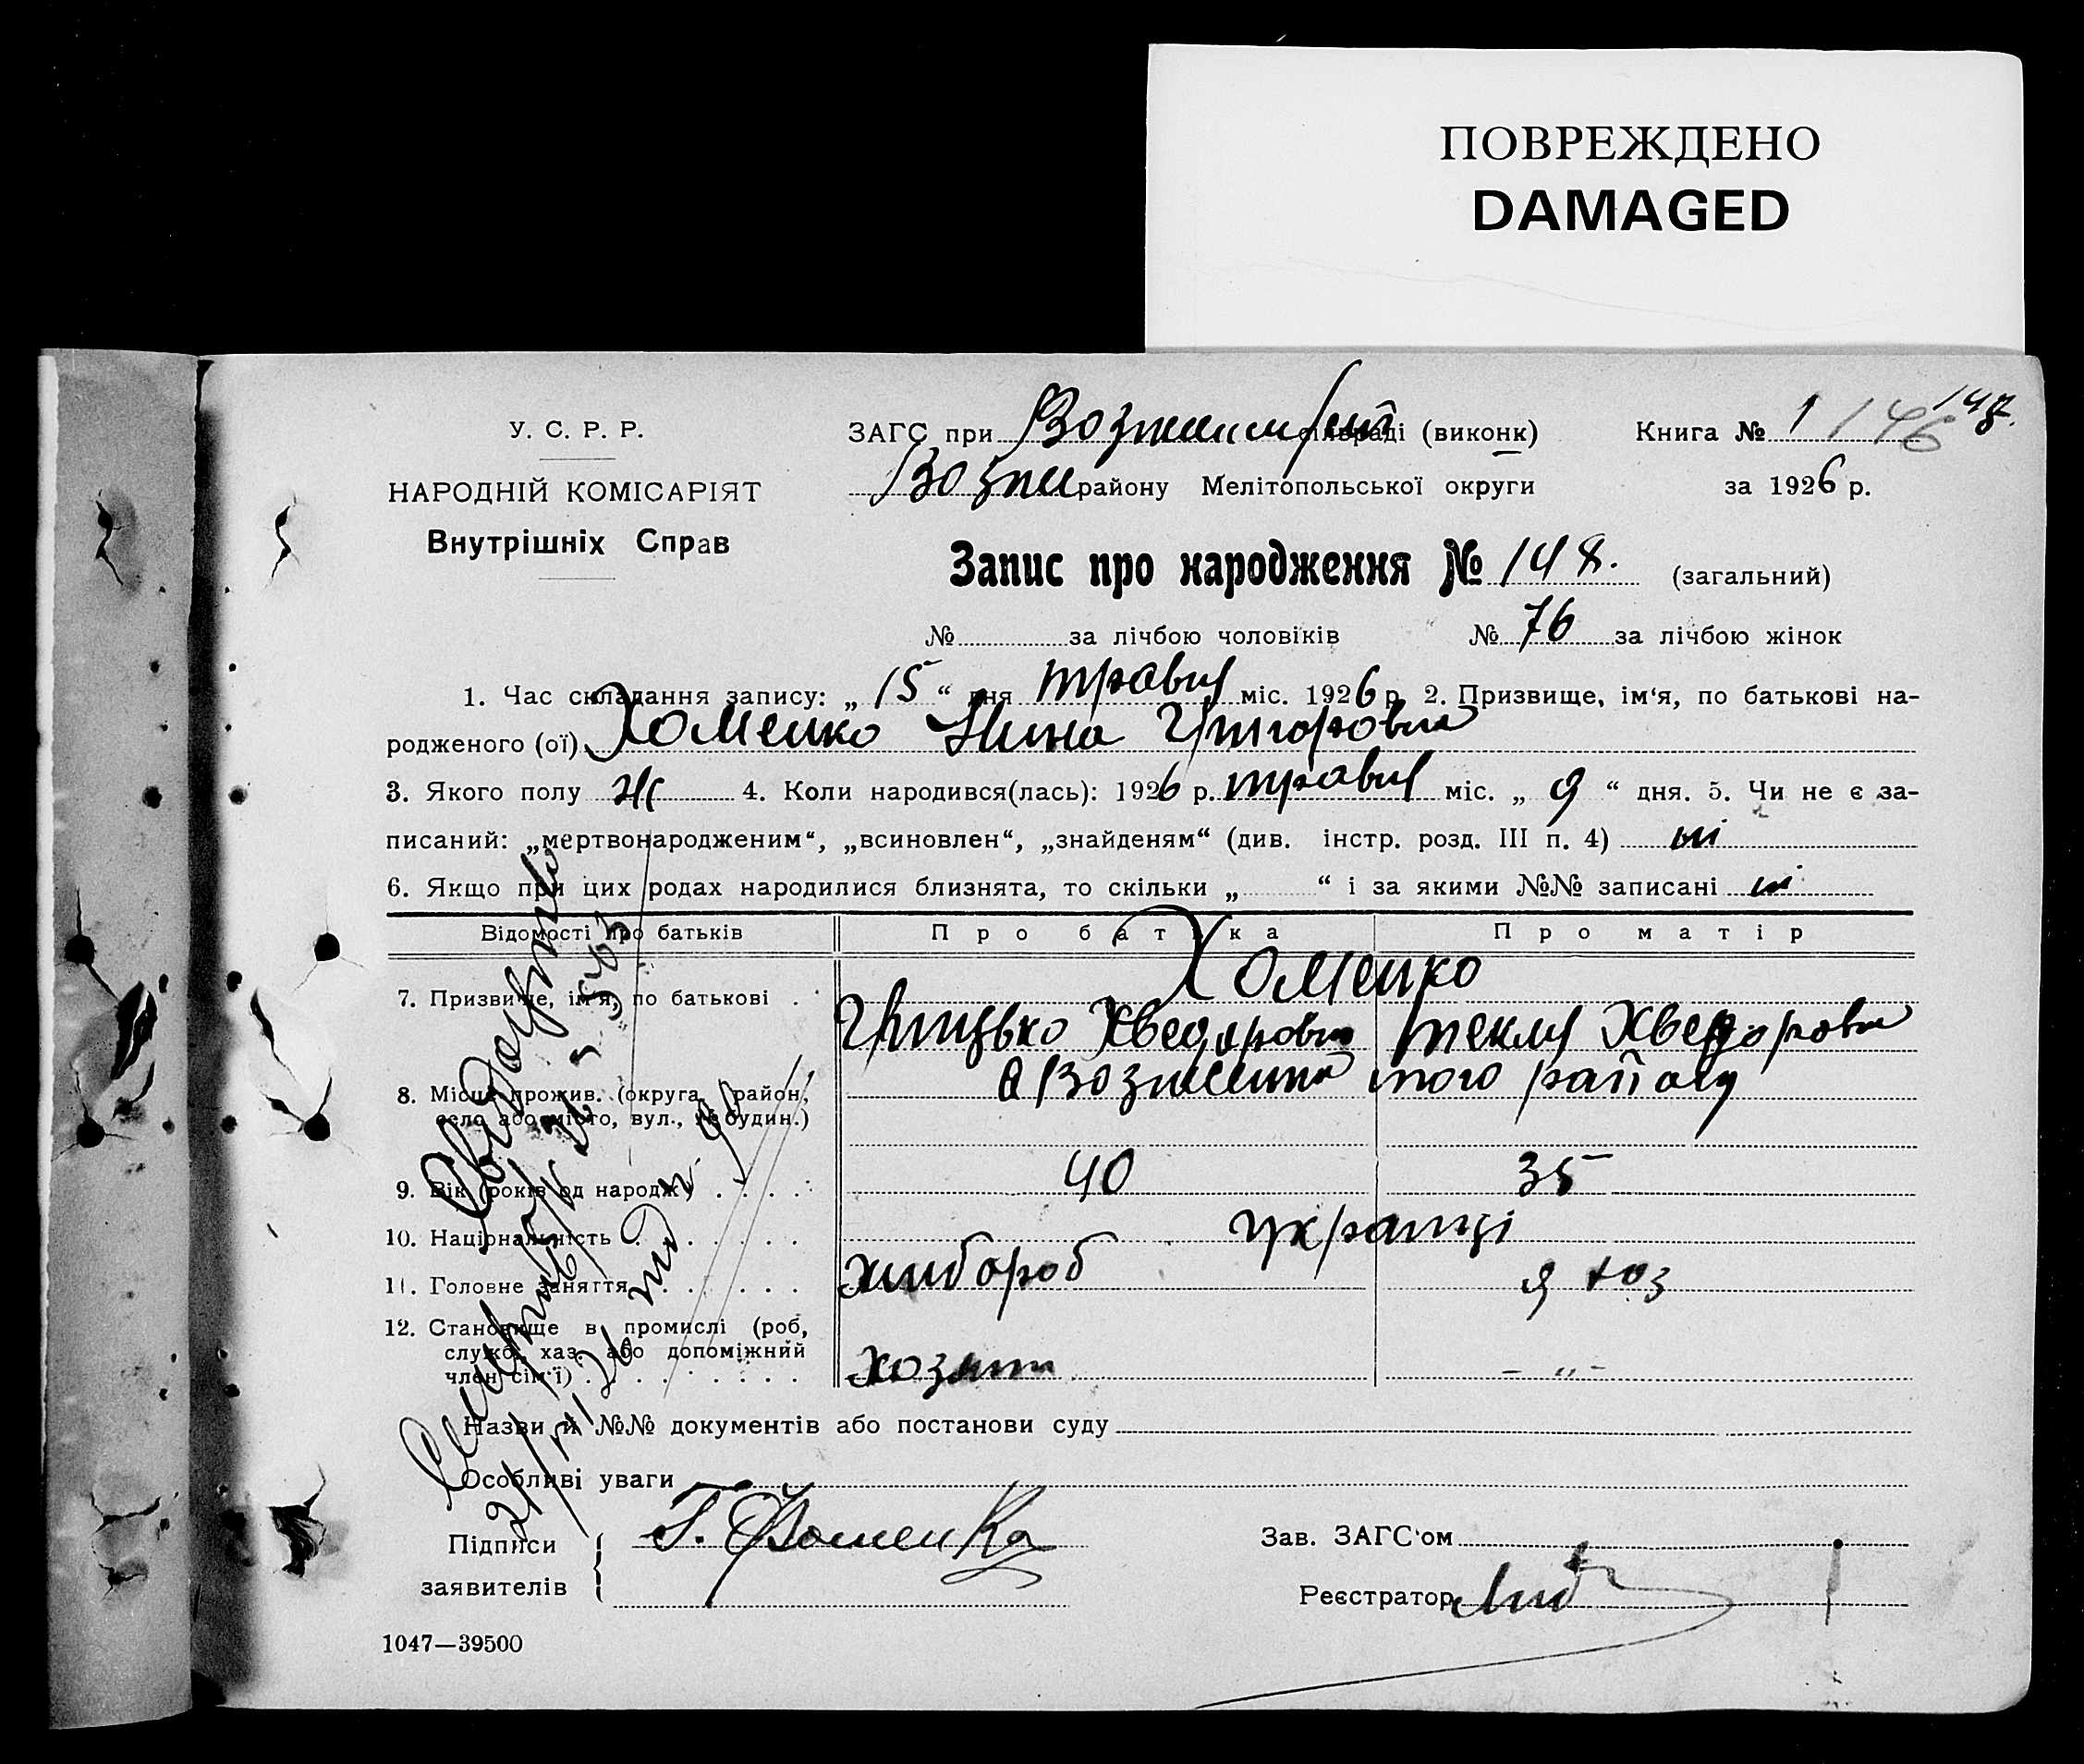 ПОВРЕЖДЕНО
DAMAGED
У. С. Р. Р.
НАРОДНІЙ КОМІСАРІЯТ
Внутрішніх Справ
ЗАГС при сільраді (виконк)
району Мелітопольської округи
Книга № 1 146 147.
за 1926 р.
Запис про народження № 148. (загальний)
№ за лічбою чоловіків № 76 за лічбою жінок
1. Час складання запису: „ 15 “ дня травня міс. 1926 р. 2. Призвище, ім‘я, по батькові на-
родженого (ої) Хоменко Нина Григоровна
3. Якого полу Ж 4. Коли народився(лась): 1926 р. травня міс. „ 9 “ дня. 5. Чи не є за-
писаний: „мертвонародженим“, „всиновлен“, „знайденям“ (див. інстр. розд. III п. 4) ні
6. Якщо при цих родах народилися близнята, то скільки „ “ і за якими №№ записані ні
Відомості про батьків Про батька Про матір
7. Призвище, ім‘я, по батькові Хоменко
Грицько Хведорович Текля Хведоровна
8. Місце прожив. (округа, район, того району
село або місто, вул., № будин.)
9. Вік (років од народж.) 40 35
10. Національність українці
11. Головне заняття хлібороб
12. Становище в промислі (роб,
служб., хаз. або допоміжний
член сім‘ї) хозяїн - „ -
Назви й №№ документів або постанови суду
Особливі уваги
Підписи
заявителів
Г. Фоменко
Зав. ЗАГС‘ом
Реєстратор
1047—39500